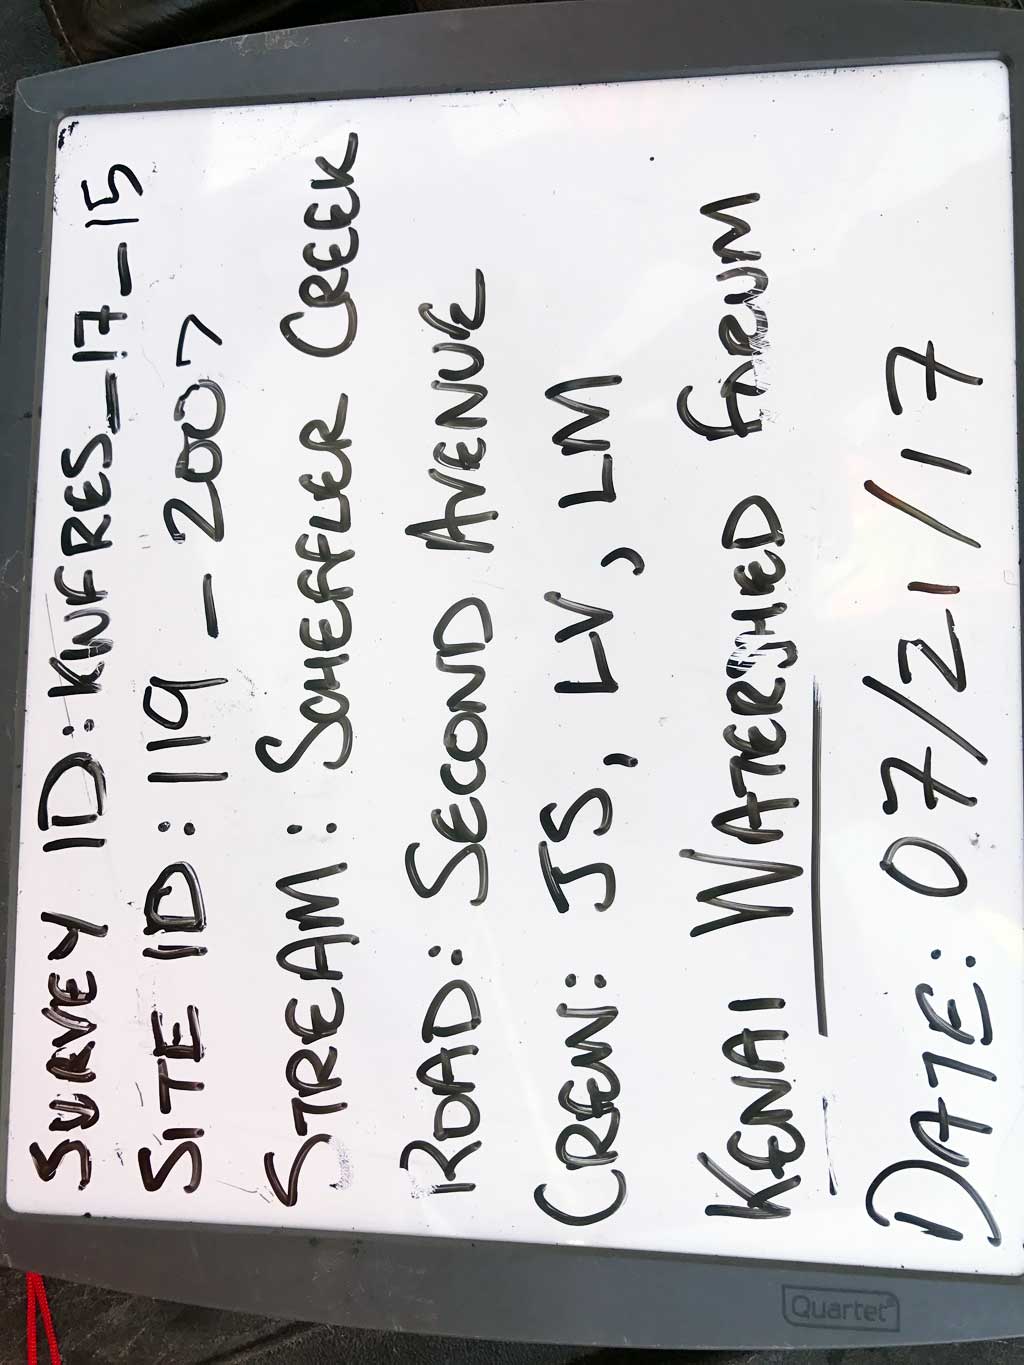 SURVEY ID: KWFRES_17_15
SITE ID: 119-2007
STREAM: SCHEFFLER CREEK
ROAD: SECOND AVENUE
CREW: JS, LV, LM
KENAI WATERSHED FORUM
DATE: 07/21/17
Quartet